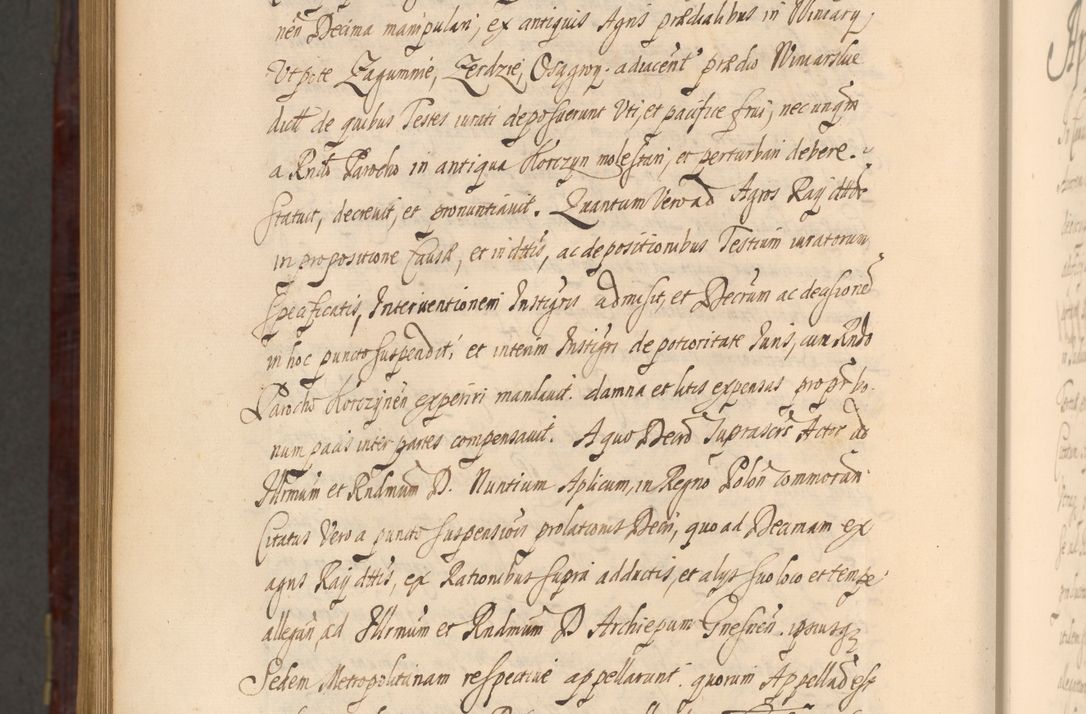 nēn Decima manipulari, ex antiquis Agris prædialibus in Winiary,
Vt pote Zagumnie, Zerdzie, Osiągroy. adiacent prædio Winiarskie
dict de quibus Testes iurati deposuerunt Vti, et pacifice frui, nec unqm
a Rndo Parocho in antiqua Korczyn molestari, et perturbari debere.
statuit, decreuit, et pronuntiauit. Quantum Vero ad Agros Ray dttos
in propositione Causæ, et in dttis, ac depositionibus Testium iuratorum
specificatis, Interventionem Instigris admisit, et Decrum ac decisionē
in hoc puncto suspendit, et interim Instigri de potioritate Iuris, cum Rndo
Parocho Korczynēn experiri mandauit. damna et litis expensas propr bo-
num pacis inter partes compensauit. A quo Decro Suprascrs Actor ad
Illrmum et Rndmum D. Nuntium Aplicum, in Regno Polōn commoran
Citatus Vero a puncto suspensiois prolationis Decri, quo ad Decimam ex
agris Ray dttis, ex Rationibus supra adductis, et alijs suo loco et tempe
allegan, ad Illrmum et Rndmum D Archiepum Gnesnēn. ipsiusq
Sedem Metropolitanam respectiue appellarunt. quorum Appellad esf